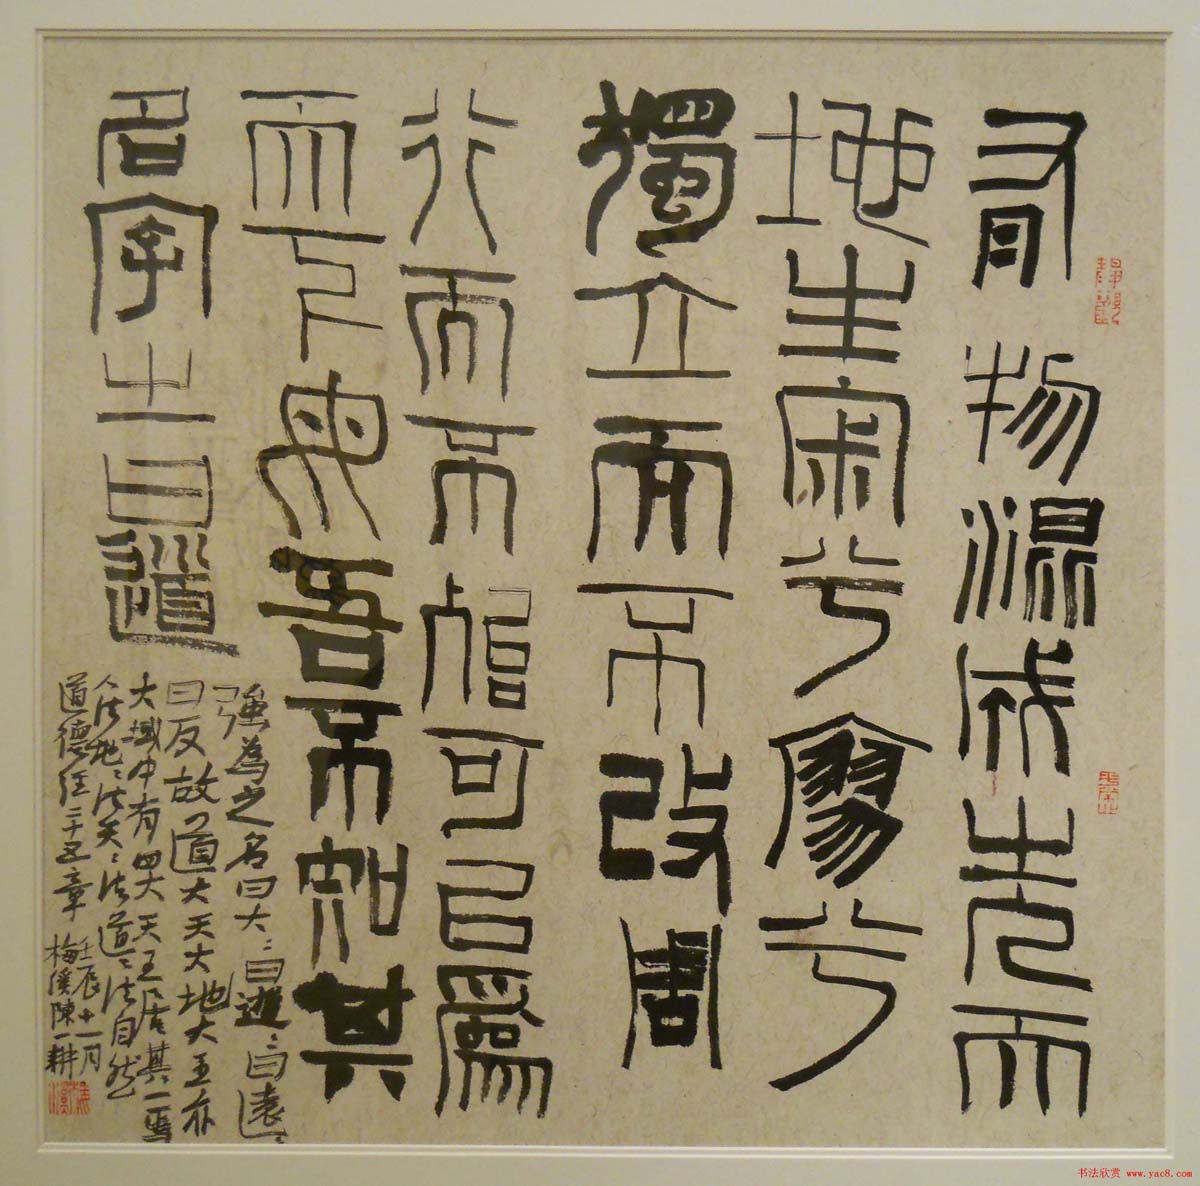 有物混成先天
地生寂兮寥兮
獨立而不改周
行而不殆可以為
天下母吾不知其
名字之曰道
強為之名曰大〻曰逝〻曰遠〻
曰反故道大天大地大王亦
大域中有四大天王居其一焉
人法地〻法天〻法道〻法自然
道德经二十五章
壬辰十一月
梅溪陳一耕
书法欣赏 www.yac8.com